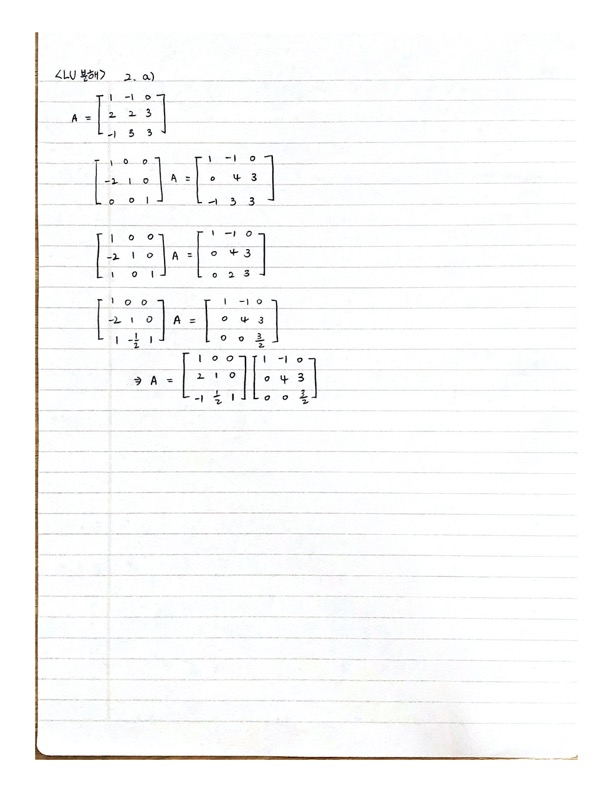 <LU 분해> 2. a)
A = [1 -1 0; 2 2 3; -1 3 3]
[1 0 0; -2 1 0; 0 0 1] A = [1 -1 0; 0 4 3; -1 3 3]
[1 0 0; -2 1 0; 1 0 1] A = [1 -1 0; 0 4 3; 0 2 3]
[1 0 0; -2 1 0; 1 -1/2 1] A = [1 -1 0; 0 4 3; 0 0 3/2]
⇒ A = [1 0 0; 2 1 0; -1 1/2 1] [1 -1 0; 0 4 3; 0 0 3/2]